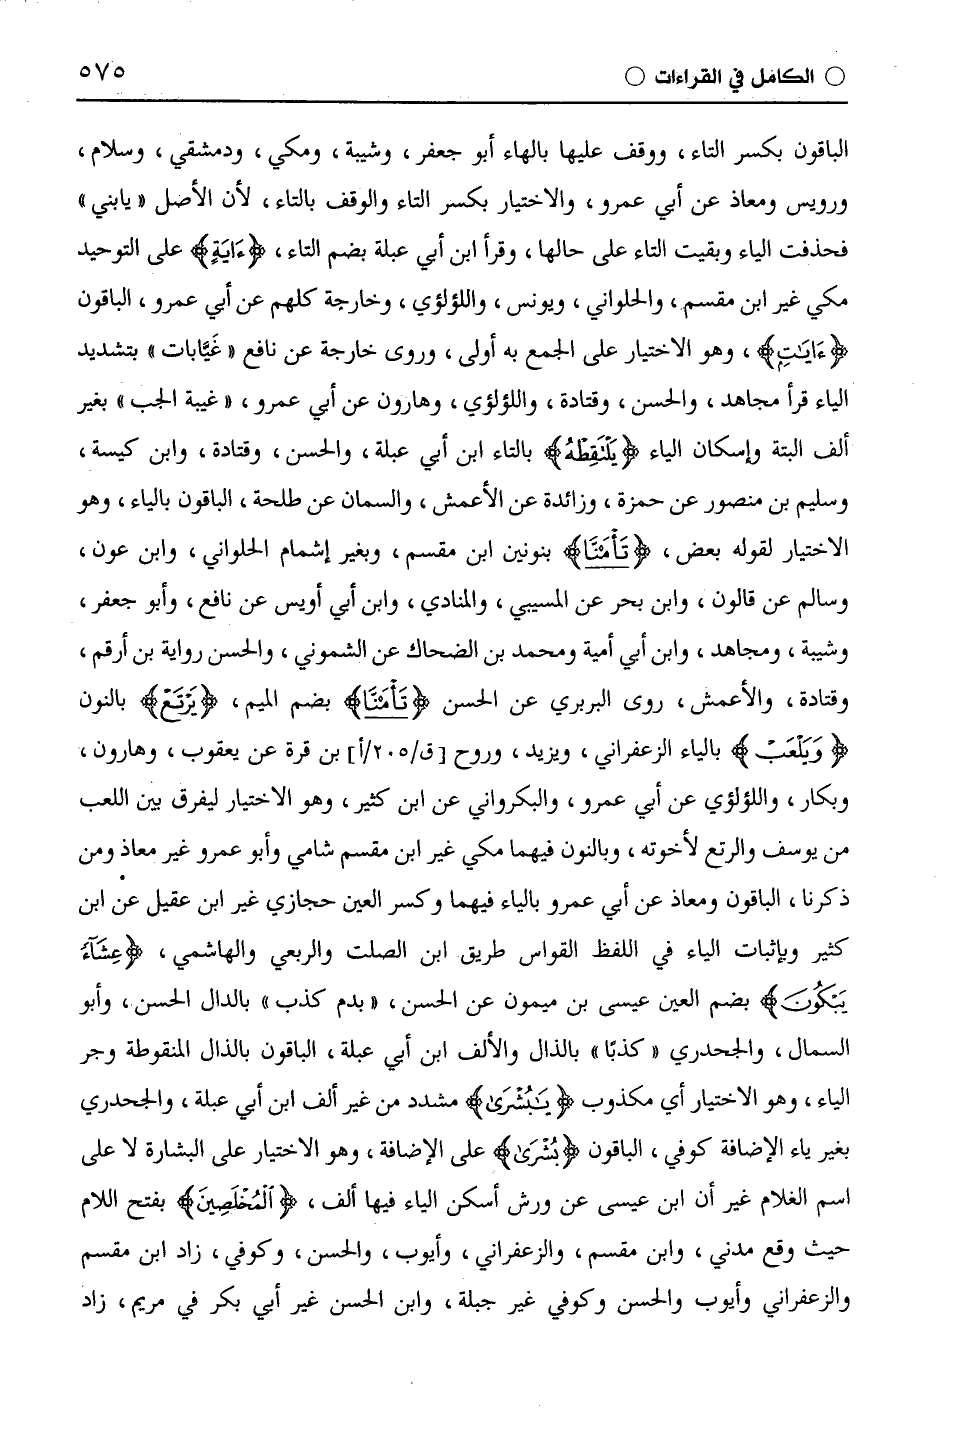 ○ الكامل في القراءات ○ ٥٧٥
الباقون بكسر التاء ، ووقف عليها بالهاء أبو جعفر ، وشيبة ، ومكي ، ودمشقي ، وسلام ،
ورويس ومعاذ عن أبي عمرو ، والاختيار بكسر التاء والوقف بالتاء ، لأن الأصل « يابني »
فحذفت الياء وبقيت التاء على حالها ، وقرأ ابن أبي عبلة بضم التاء ، ﴿ءَايَةٍ﴾ على التوحيد
مكي غير ابن مقسم ، والحلواني ، ويونس ، واللؤلؤي ، وخارجة كلهم عن أبي عمرو ، الباقون
﴿ءَايَٰتٖ﴾ ، وهو الاختيار على الجمع به أولى ، وروى خارجة عن نافع « غَيَّابات » بتشديد
الياء قرأ مجاهد ، والحسن ، وقتادة ، واللؤلؤي ، وهارون عن أبي عمرو ، « غيبة الجب » بغير
ألف البتة وإسكان الياء ﴿يَلۡتَقِطۡهُ﴾ بالتاء ابن أبي عبلة ، والحسن ، وقتادة ، وابن كيسة ،
وسليم بن منصور عن حمزة ، وزائدة عن الأعمش ، والسمان عن طلحة ، الباقون بالياء ، وهو
الاختيار لقوله بعض ، ﴿تَأۡمَ۬نَّا﴾ بنونين ابن مقسم ، وبغير إشمام الحلواني ، وابن عون ،
وسالم عن قالون ، وابن بحر عن المسيبي ، والمنادي ، وابن أبي أويس عن نافع ، وأبو جعفر ،
وشيبة ، ومجاهد ، وابن أبي أمية ومحمد بن الضحاك عن الشموني ، والحسن رواية بن أرقم ،
وقتادة ، والأعمش ، روى البربري عن الحسن ﴿تَأۡمَ۬نَّا﴾ بضم الميم ، ﴿يَرۡتَعۡ﴾ بالنون
﴿وَيَلۡعَبۡ﴾ بالياء الزعفراني ، ويزيد ، وروح [ق/٢٠٥/أ] بن قرة عن يعقوب ، وهارون ،
وبكار ، واللؤلؤي عن أبي عمرو ، والبكرواني عن ابن كثير ، وهو الاختيار ليفرق بين اللعب
من يوسف والرتع لأخوته ، وبالنون فيهما مكي غير ابن مقسم شامي وأبو عمرو غير معاذ ومن
ذكرنا ، الباقون ومعاذ عن أبي عمرو بالياء فيهما وكسر العين حجازي غير ابن عقيل عن ابن
كثير وبإثبات الياء في اللفظ القواس طريق ابن الصلت والربعي والهاشمي ، ﴿عِشَآءٗ
يَبۡكُونَ﴾ بضم العين عيسى بن ميمون عن الحسن ، « بدم كذب » بالدال الحسن ، وأبو
السمال ، والجحدري « كذبًا » بالذال والألف ابن أبي عبلة ، الباقون بالذال المنقوطة وجر
الياء ، وهو الاختيار أي مكذوب ﴿يَٰبُشۡرَىٰ﴾ مشدد من غير ألف ابن أبي عبلة ، والجحدري
بغير ياء الإضافة كوفي ، الباقون ﴿بُشۡرَىٰ﴾ على الإضافة ، وهو الاختيار على البشارة لا على
اسم الغلام غير أن ابن عيسى عن ورش أسكن الياء فيها ألف ، ﴿ٱلۡمُخۡلَصِينَ﴾ بفتح اللام
حيث وقع مدني ، وابن مقسم ، والزعفراني ، وأيوب ، والحسن ، وكوفي ، زاد ابن مقسم
والزعفراني وأيوب والحسن وكوفي غير جبلة ، وابن الحسن غير أبي بكر في مريم ، زاد